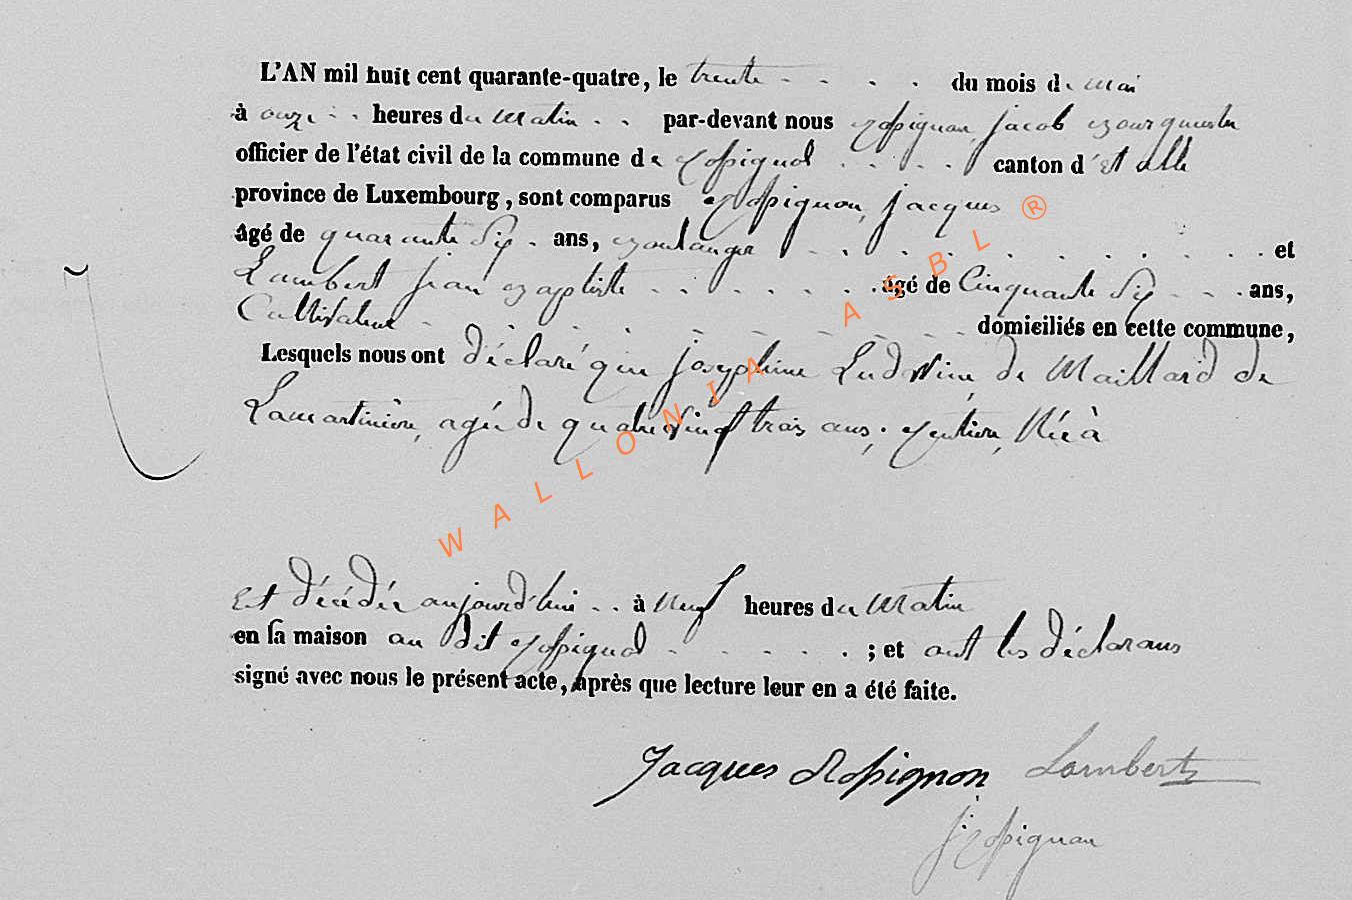 L'AN mil huit cent quarante-quatre, le trente - - - - du mois de mai
à onze - - heures du Matin - - par-devant nous Rossignon, Jacob Bourguestre
officier de l'état civil de la commune de Rossignol - - - - canton d'Etalle
province de Luxembourg, sont comparus Rossignon, Jacques
âgé de quarante Six - ans, Boulanger - - - - - - - - - - et
Lambert Jean Baptiste - - - - - - âgé de Cinquante Six - - - ans,
Cultivateur - - - - - - - - domiciliés en cette commune,
Lesquels nous ont déclaré que Josephine Ludovine de Maillard de
Lamartinière, agée de quatrevingt trois ans, Rentiere, Née à
Est décédée aujourd'hui - - à Neuf heures du Matin
en sa maison au dit Rossignol - - - - - ; et ont les déclarans
signé avec nous le présent acte, après que lecture leur en a été faite.
Jacques Rossignon Lambert
J. Rossignon
WALLONIA ASBL ®